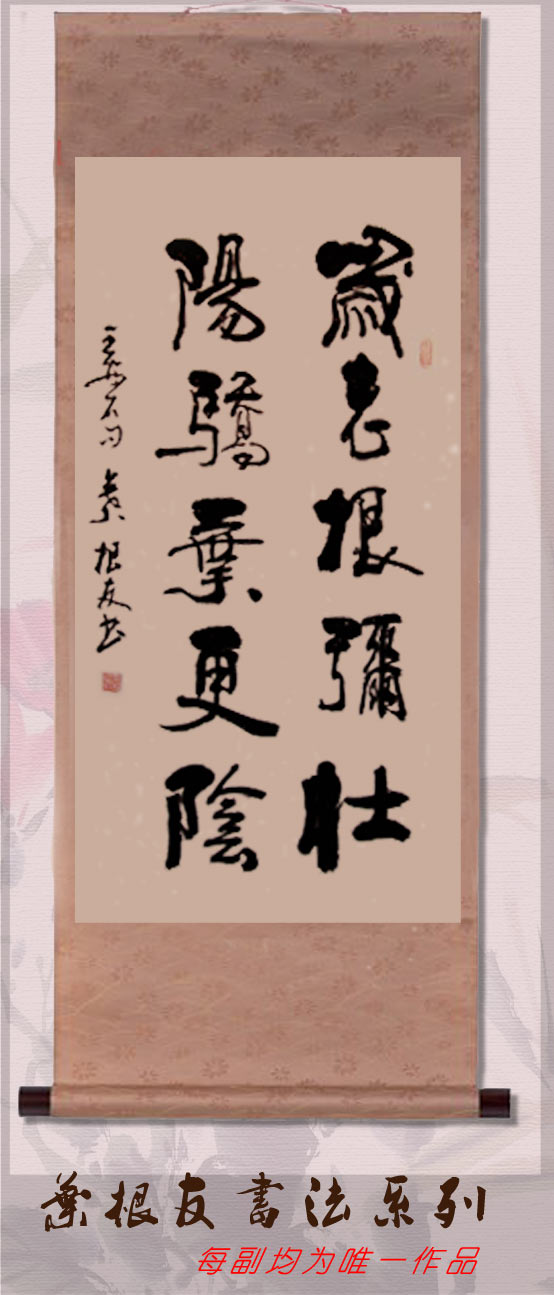 歲老根彌壯
陽驕葉更陰
王安石句 葉根友書
葉根友書法系列
每副均为唯一作品